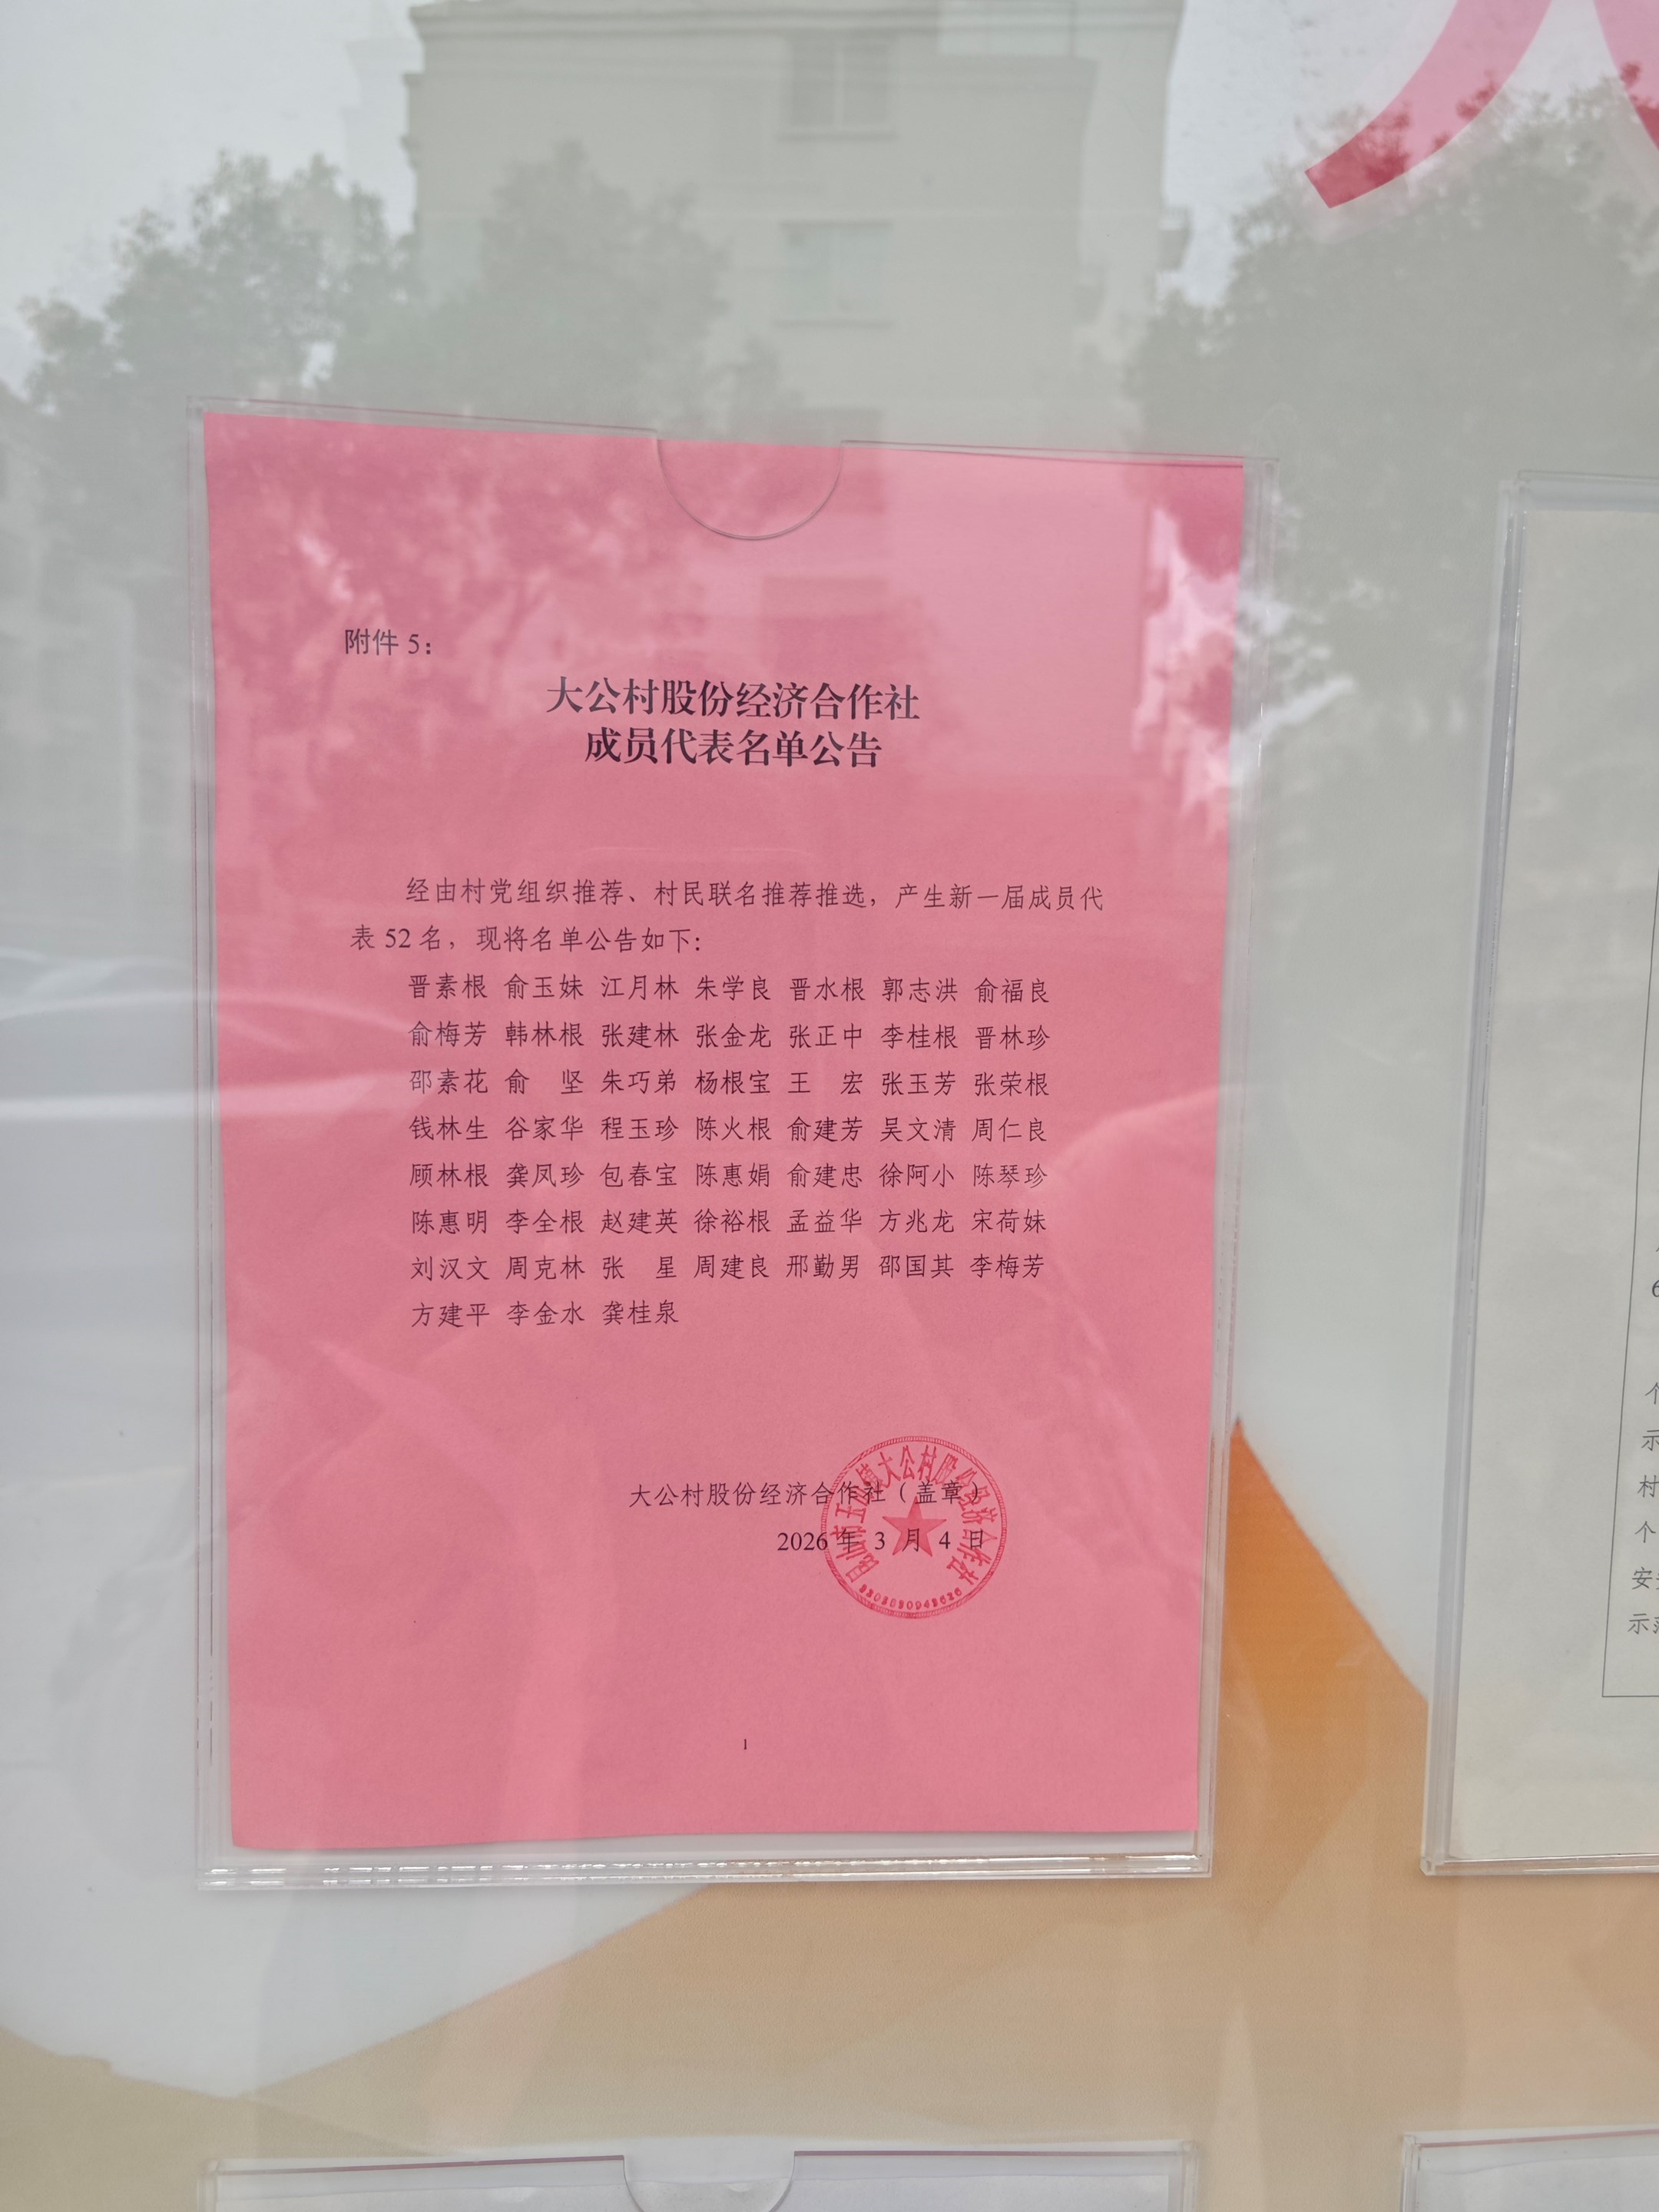 附件 5：
大公村股份经济合作社
成员代表名单公告
经由村党组织推荐、村民联名推荐推选，产生新一届成员代
表 52 名，现将名单公告如下：
晋素根 俞玉妹 江月林 朱学良 晋水根 郭志洪 俞福良
俞梅芳 韩林根 张建林 张金龙 张正中 李桂根 晋林珍
邵素花 俞　坚 朱巧弟 杨根宝 王　宏 张玉芳 张荣根
钱林生 谷家华 程玉珍 陈火根 俞建芳 吴文清 周仁良
顾林根 龚凤珍 包春宝 陈惠娟 俞建忠 徐阿小 陈琴珍
陈惠明 李全根 赵建英 徐裕根 孟益华 方兆龙 宋荷妹
刘汉文 周克林 张　星 周建良 邢勤男 邵国其 李梅芳
方建平 李金水 龚桂泉
大公村股份经济合作社（盖章）
2026 年 3 月 4 日
昆山市玉山镇大公村股份经济合作社
1
个
示
村
个
安
示